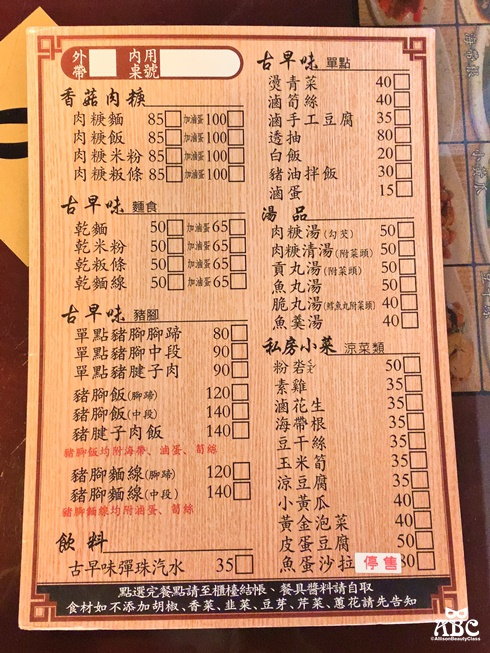 外帶 內用桌號
香菇肉粳
肉粳麵 85 加滷蛋100
肉粳飯 85 加滷蛋100
肉粳米粉 85 加滷蛋100
肉粳粄條 85 加滷蛋100
古早味 麵食
乾麵 50 加滷蛋65
乾米粉 50 加滷蛋65
乾粄條 50 加滷蛋65
乾麵線 50 加滷蛋65
古早味 豬腳
單點豬腳腳蹄 80
單點豬腳中段 90
單點豬腱子肉 90
豬腳飯(腳蹄) 120
豬腳飯(中段) 140
豬腱子肉飯 140
豬腳飯均附海帶、滷蛋、筍絲
豬腳麵線(腳蹄) 120
豬腳麵線(中段) 140
豬腳麵線均附滷蛋、筍絲
飲料
古早味彈珠汽水 35
古早味 單點
燙青菜 40
滷筍絲 40
滷手工豆腐 35
透抽 80
白飯 20
豬油拌飯 30
滷蛋 15
湯品
肉粳湯(勾芡) 50
肉粳清湯(附菜頭) 50
貢丸湯(附菜頭) 50
魚丸湯 50
脆丸湯(鱈魚丸附菜頭) 40
魚羹湯 40
私房小菜 涼菜類
粉砦 50
素雞 35
滷花生 35
海帶根 35
豆干絲 35
玉米筍 35
涼豆腐 35
小黃瓜 40
黃金泡菜 40
皮蛋豆腐 50
魚蛋沙拉 停售
點選完餐點請至櫃檯結帳、餐具醬料請自取
食材如不添加胡椒、香菜、韭菜、豆芽、芹菜、蔥花請先告知
ABC
©AllisonBeautyClass